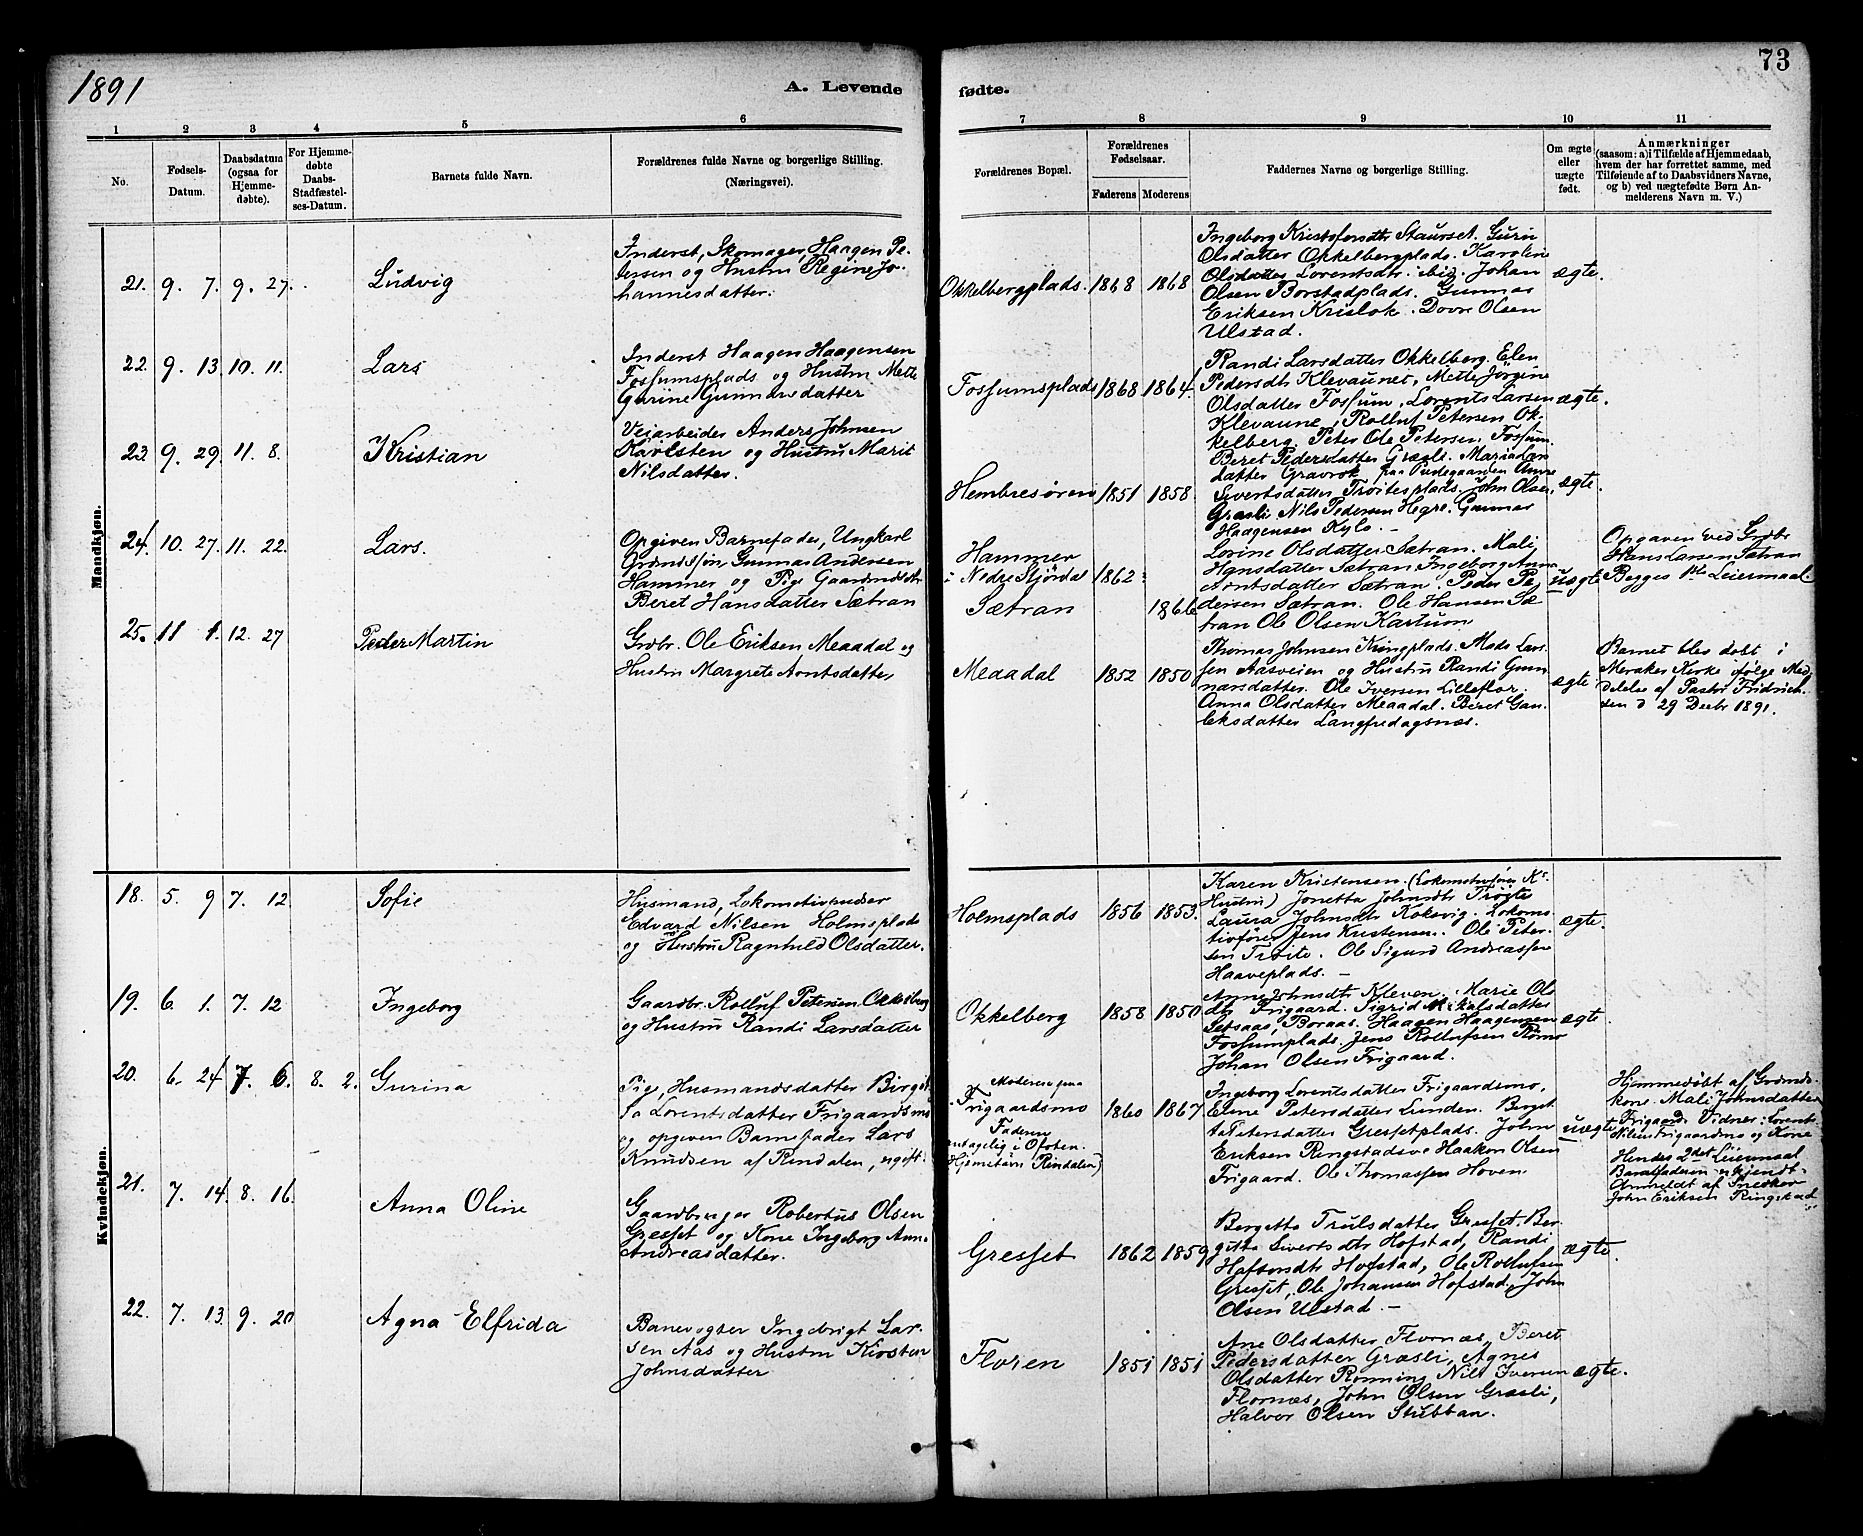 1891
A. Levende
fødte.
73
1 2 3 4 5 6 7 8 9 10 11
No.
Fødsels-
Datum.
Daabsdatum
(ogsaa for
Hjemme-
døbte).
For Hjemme-
døbte
Daabs-
Stadfæstel-
ses-Datum.
Barnets fulde Navn.
Forældrenes fulde Navne og borgerlige Stilling.
(Næringsvei).
Forældrenes Bopæl.
Forældrenes
Fødselsaar.
Faderens Moderens
Faddernes Navne og borgerlige Stilling.
Om ægte
eller
uægte
født.
Anmærkninger
(saasom: a) i Tilfælde af Hjemmedaab,
hvem der har forrettet samme, med
Tilføiende af to Daabsvidners Navne,
og b) ved uægtefødte Børn An-
melderens Navn m. V.)
Mandkjøn.
21. 9. 7. 9. 27. Ludvig
Inderst, Skomager, Haagen Pe-
tersen og Hustru Regine Jo-
hannesdatter.
Okkelbergplads. 1868 1868
Ingeborg Kristofersdtr Staurset. Guru
Olsdatter Okkelbergplads. Karolin
Olsdatter Lorentsdtr. ibid. Johan
Olsen Borstadplads. Gunnar
Eriksen Krislok. Dovre Olsen
Ulstad.
ægte.
22. 9. 13. 10. 11. Lars
Inderst Haagen Haagensen
Fossumsplads og Hustru Mette
Gurine Gunnarsdatter
Fossumsplads 1868 1864.
Randi Larsdatter Okkelberg. Elen
Pedersdtr Klevaunet, Mette Jørgine
Olsdatter Fossum, Lorents Larsen
Klevaune, Rolluf Petersen Ok-
kelberg. Peter Ole Petersen Fossum.
ægte.
23 9. 29. 11. 8. Kristian
Veiarbeider Anders Johnsen
Karlsten og Hustru Marit
Nilsdatter.
Hembresøren 1851 1858.
Beret Pedersdatter Græsli. Maria Lars
datter Gravrok fra Prestegaarden Anne
Sivertsdatter Trøitesplads. John Olsen
Græsli. Nils Pedersen Hegre. Gunnar
Haagensen Kylo. —
ægte.
24. 10. 27. 11. 22. Lars.
Opgiven Barnefader, Ungkarl
Grdmdssøn Gunnar Andersen
Hammer og Pige Gaardmdsdtr
Beret Hansdatter Sætran
Hammer
i Nedre Stjørdal 1862
Sætran 1866
Lorine Olsdatter Sætran. Mali
Hansdatter Sætran Ingeborg Anna
Arntsdatter Sætran. Peder Pe-
dersen Sætran. Ole Hansen Sæ-
tran Ole Olsen Kartum
uægte
Opgaven ved Grdbr
Hans Larsen Sætran
Begges 1ste Leiermaal.
25. 11 1. 12. 27 Peder Martin
Grdbr. Ole Eriksen Meaadal og
Hustru Margrete Arntsdatter
Meaadal 1852 1850
Thomas Johnsen Kringplads. Mads Lar-
sen Aasveien og Hustru Randi Gun-
narsdatter. Ole Iversen Lilleflor.
Anna Olsdatter Meaadal. Beret Gun-
leksdatter Langfredagsnæs.
ægte
Barnet blev døbt i
Meraker Kirke ifølge Med-
delelse af Pastor Fridrich-
sen d 29 Decbr 1891.
Kvindekjøn.
18. 5. 9 7. 12 Sofie
Husmand, Lokomotivpudser
Edvard Nilsen Holmsplads
og Hustru Ragnhild Olsdatter.
Holmsplads 1856 1853.
Karen Kristensen. (Lokomotivfører Ks
Hustru) Jonetta Johnsdtr Trøyte
Laura Johnsdtr Koksvig. Lokomo-
tivfører Jens Kristensen. Ole Peter-
sen Trøite. Ole Sigurd Andreassen
Haaveplads. —
ægte.
19. 6. 1. 7. 12 Ingeborg
Gaardbr. Rolluf Petersen Okkelberg
og Hustru Randi Larsdatter
Okkelberg 1858 1850
Anne Johnsdtr Kleven. Marie Ols
dtr Frigaard. Sigrid Mikalsdatter
Setsaas, Boraas. Haagen Haagensen
Fossumplads. Jens Rollufsen Rømo
Johan Olsen Frigaard.
ægte.
20. 6. 24 7. 6. 8. 2. Gurina
Pige, Husmandsdatter Birgit-
ta Lorentsdatter Frigaardsmo
og opgiven Barnefader Lars
Knudsen af Rindalen, ugift.
Moderen fra
Frigaardsmo 1860 1867
Faderen
antagelig i Ofoten.
Hjemstavn Rindalen)
Ingeborg Lorentsdatter Frigaardsmo,
Elene Petersdatter Lunden. Berget
ta Petersdatter Gressetplads. John
Eriksen Ringstadsve Haakon Olsen
Frigaard. Ole Thomassen Hoven
uægte
Hjemmedøbt af Grdmds-
kone. Mali Johnsdatter
Frigaard. Vidner: Lorents
Nilsen Frigaardsmo og Kone
Hendes 2det Leiermaal
Barnefaderen ukjendt.
Anmeldt af Snedker
John Eriksen Ringstad
21. 7. 14. 8. 16. Anna Oline
Gaardbruger Robertus Olsen
Gresset og Kone Ingeborg Anna
Andreasdatter.
Gresset 1862 1859
Bergetta Trulsdatter Gresset. Ber-
gitta Sivertsdtr Hofstad, Randi
Haftorsdtr Hofstad, Ole Rollufsen
Gresset, Ole Johansen Hofstad, John
Olsen Ulstad. —
ægte.
22. 7. 13. 9. 20 Agna Elfrida
Banevogter Ingebrigt Lar-
sen Aas og Hustru Kirsten
Johnsdatter
Floren 1851 1851
Ane Olsdatter Flornæs, Beret
Pedersdatter Græsli, Agnes
Olsdatter Rønning Nils Iversen
Flornæs, John Olsen Græsli,
Halvor Olsen Stubban.
ægte.